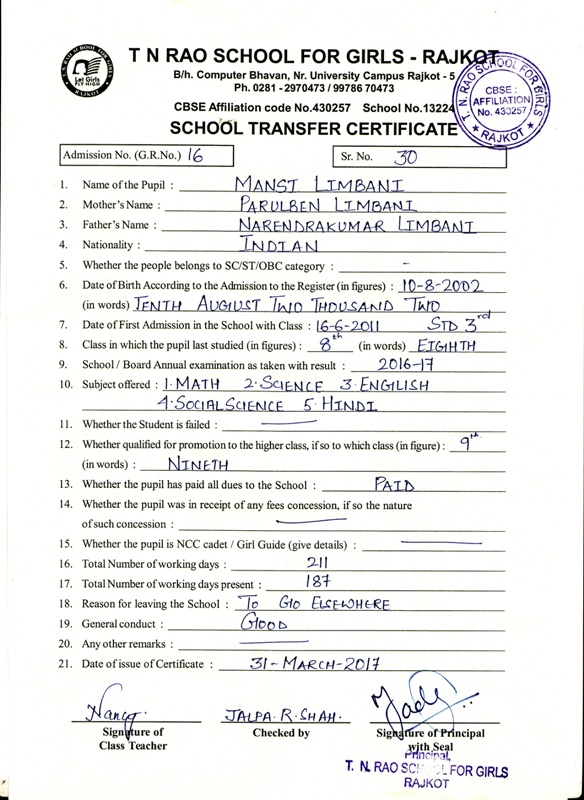 T N RAO SCHOOL FOR GIRLS - RAJKOT
B/h. Computer Bhavan, Nr. University Campus Rajkot - 5
Ph. 0281 - 2970473 / 99786 70473
CBSE Affiliation code No.430257 School No.13224
SCHOOL TRANSFER CERTIFICATE
T. N. RAO SCHOOL FOR GIRLS
RAJKOT
Let Girls
FLY HIGH
T. N. RAO SCHOOL FOR GIRLS
CBSE :
AFFILIATION
No. 430257
★ RAJKOT ★
Admission No. (G.R.No.) 16 Sr. No. 30
1. Name of the Pupil : MANSI LIMBANI
2. Mother's Name : PARULBEN LIMBANI
3. Father's Name : NARENDRAKUMAR LIMBANI
4. Nationality : INDIAN
5. Whether the people belongs to SC/ST/OBC category : -
6. Date of Birth According to the Admission to the Register (in figures) : 10-8-2002
(in words) TENTH AUGUST TWO THOUSAND TWO
7. Date of First Admission in the School with Class : 16-6-2011 STD 3rd
8. Class in which the pupil last studied (in figures) : 8th (in words) EIGHTH
9. School / Board Annual examination as taken with result : 2016-17
10. Subject offered : 1. MATH 2. SCIENCE 3. ENGLISH
4. SOCIAL SCIENCE 5. HINDI
11. Whether the Student is failed :
12. Whether qualified for promotion to the higher class, if so to which class (in figure) : 9th
(in words) : NINETH
13. Whether the pupil has paid all dues to the School : PAID
14. Whether the pupil was in receipt of any fees concession, if so the nature
of such concession :
15. Whether the pupil is NCC cadet / Girl Guide (give details) :
16. Total Number of working days : 211
17. Total Number of working days present : 187
18. Reason for leaving the School : TO GO ELSEWHERE
19. General conduct : GOOD
20. Any other remarks :
21. Date of issue of Certificate : 31-MARCH-2017
JALPA.R.SHAH.
Signature of
Class Teacher
Checked by
Signature of Principal
with Seal
Principal,
T. N. RAO SCHOOL FOR GIRLS
RAJKOT